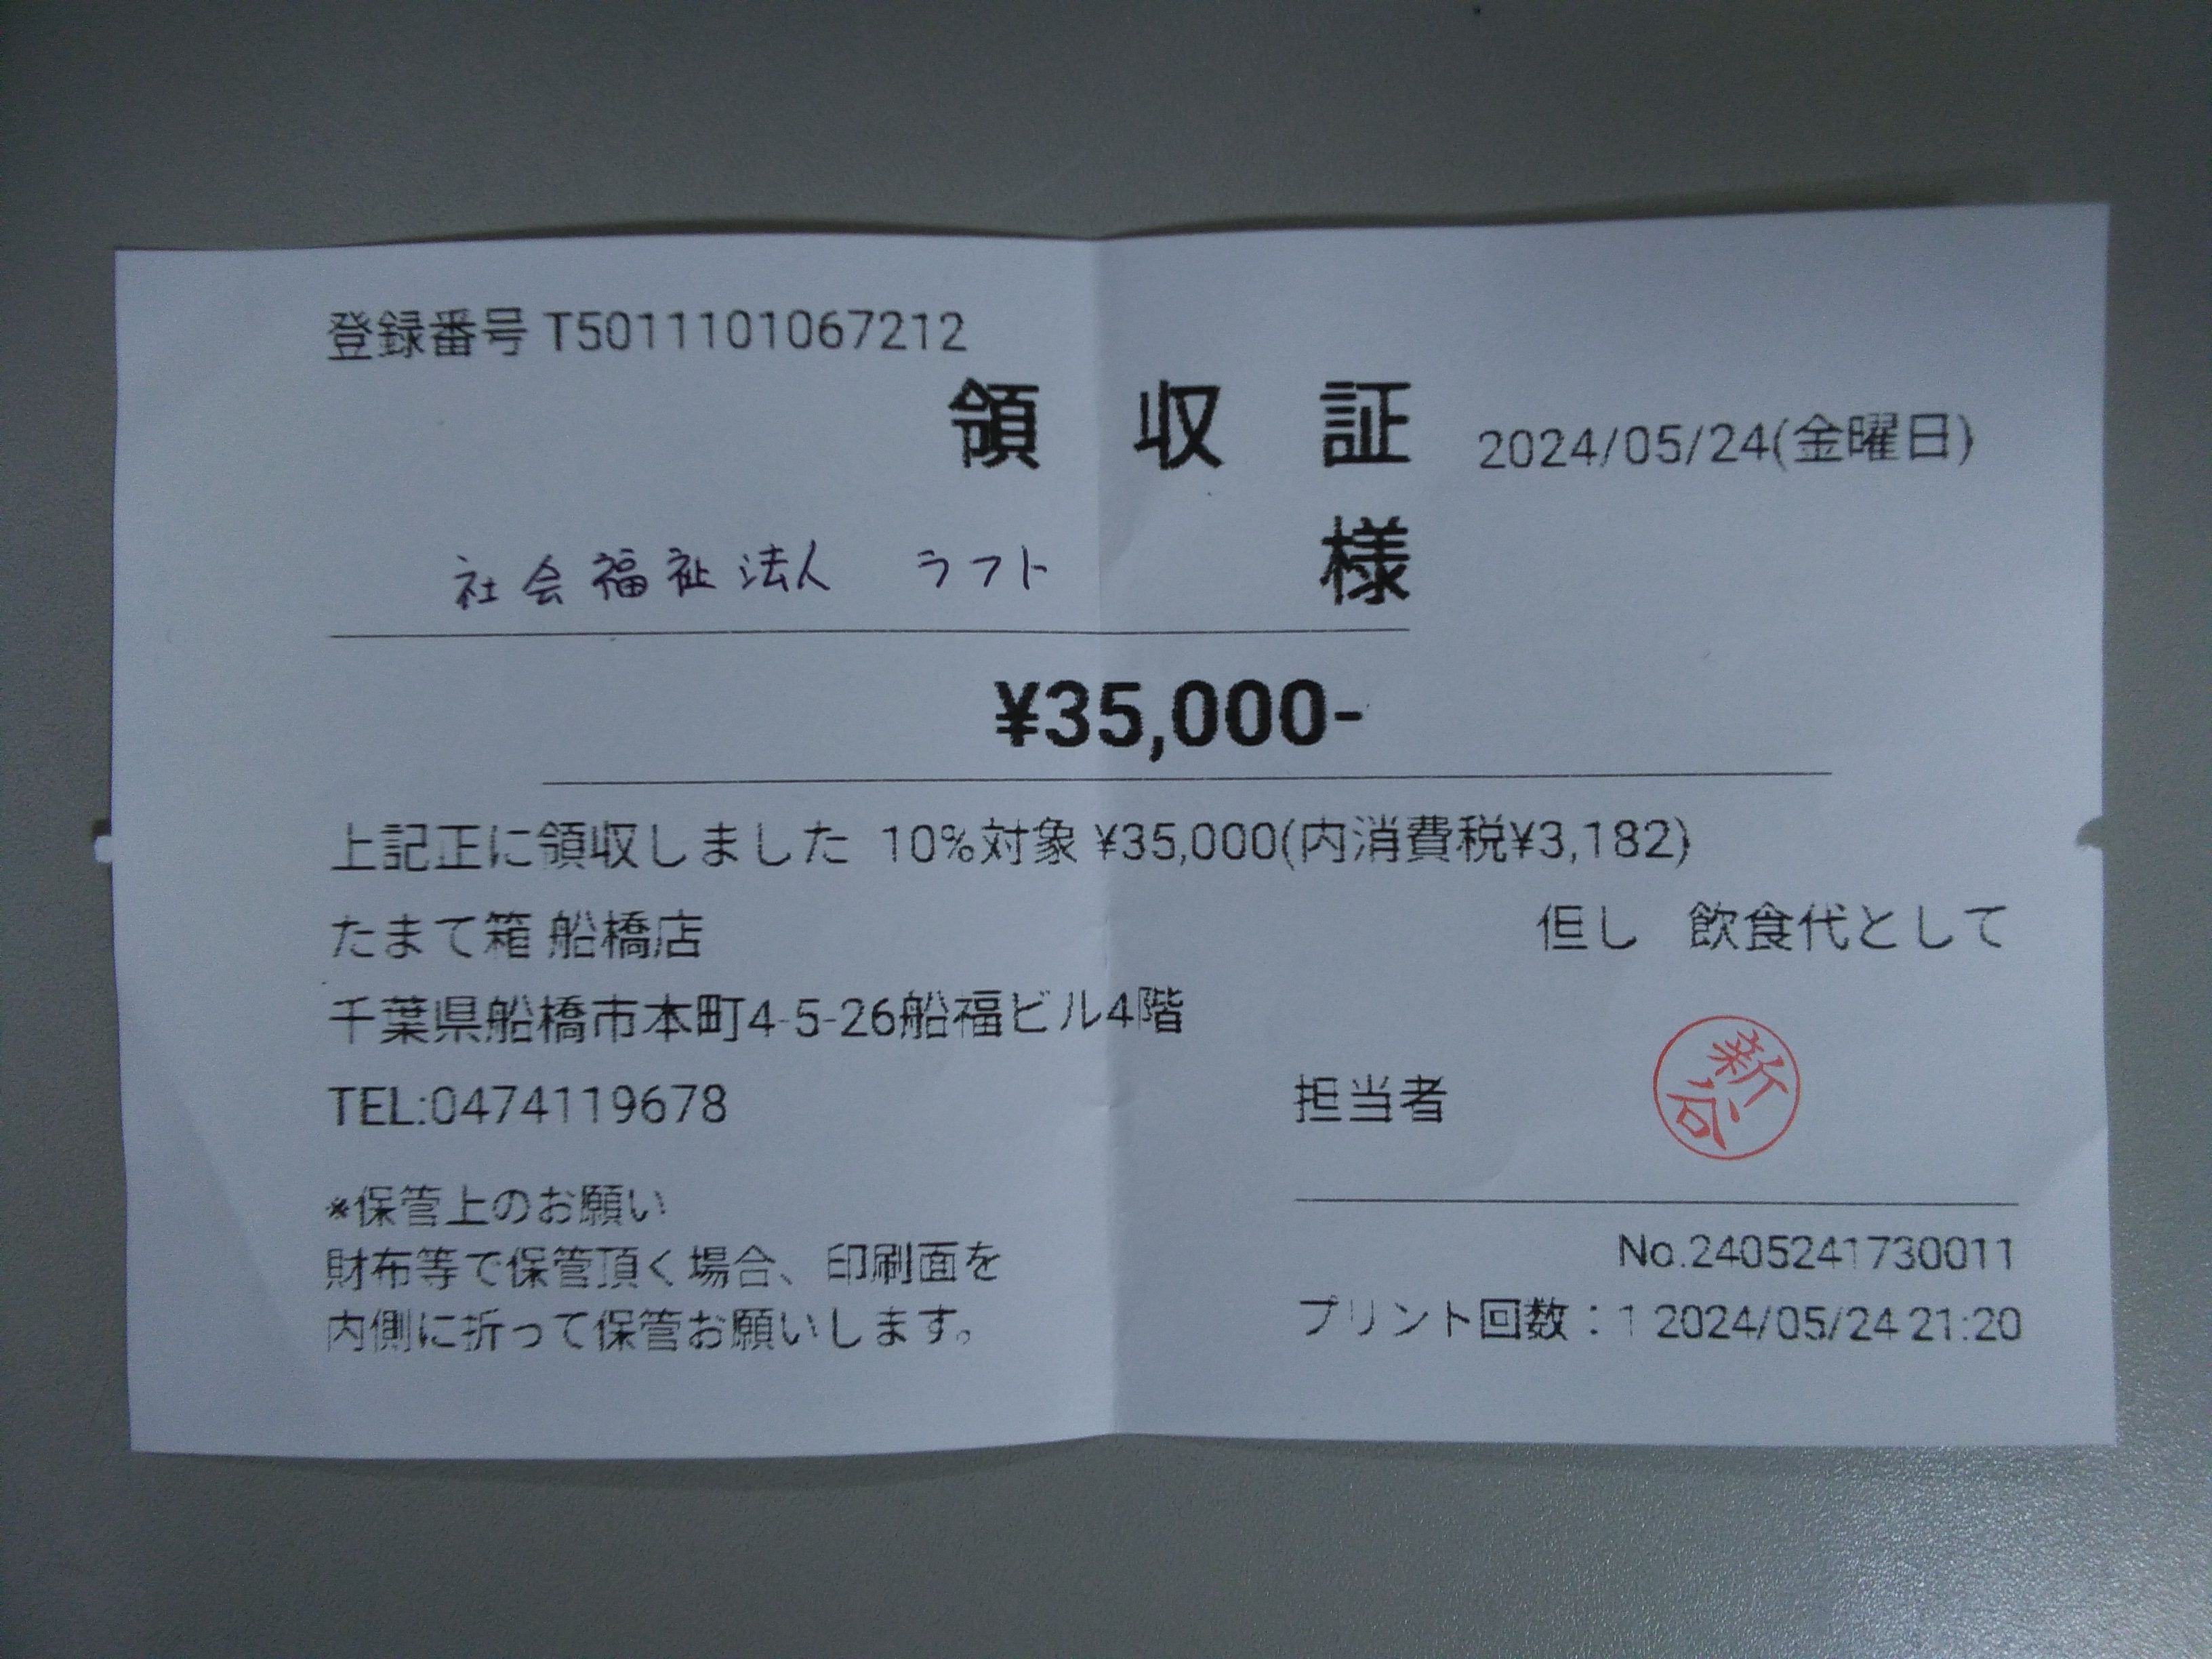 登録番号 T5011101067212
領 収 証 2024/05/24(金曜日)
社会福祉法人 ラフト 様
¥35,000-
上記正に領収しました 10%対象 ¥35,000(内消費税¥3,182)
たまて箱 船橋店 但し 飲食代として
千葉県船橋市本町4-5-26船福ビル4階
TEL:0474119678 担当者 新谷
※保管上のお願い
財布等で保管頂く場合、印刷面を
内側に折って保管お願いします。
No.2405241730011
プリント回数：1 2024/05/24 21:20